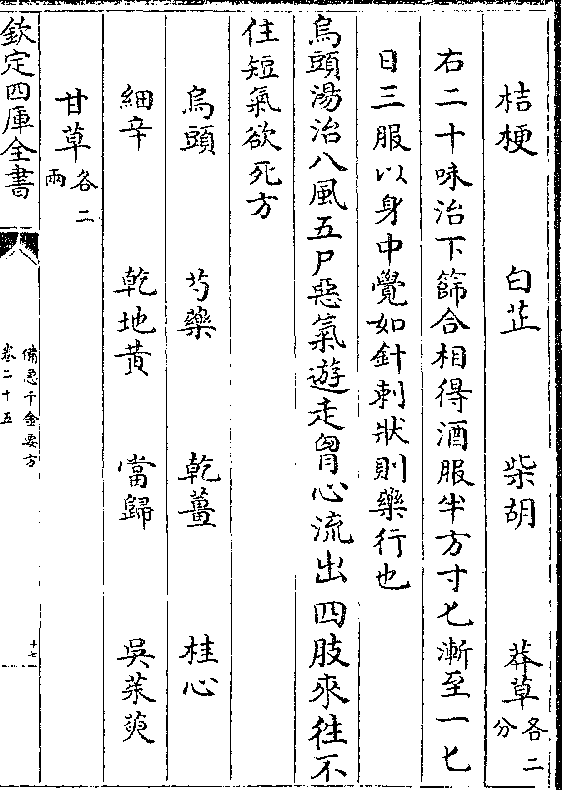 桔梗 白芷 柴胡 莽草各二分
右二十味治下篩合相得酒服半方寸匕漸至一匕
日三服以身中覺如針刺狀則藥行也
烏頭湯治八風五尸惡氣遊走胷心流出四肢來往不
住短氣欲死方
烏頭 芍藥 乾薑 桂心
細辛 乾地黃 當歸 吳茱萸
甘草各二兩
欽定四庫全書
備急千金要方
卷二十五
十七